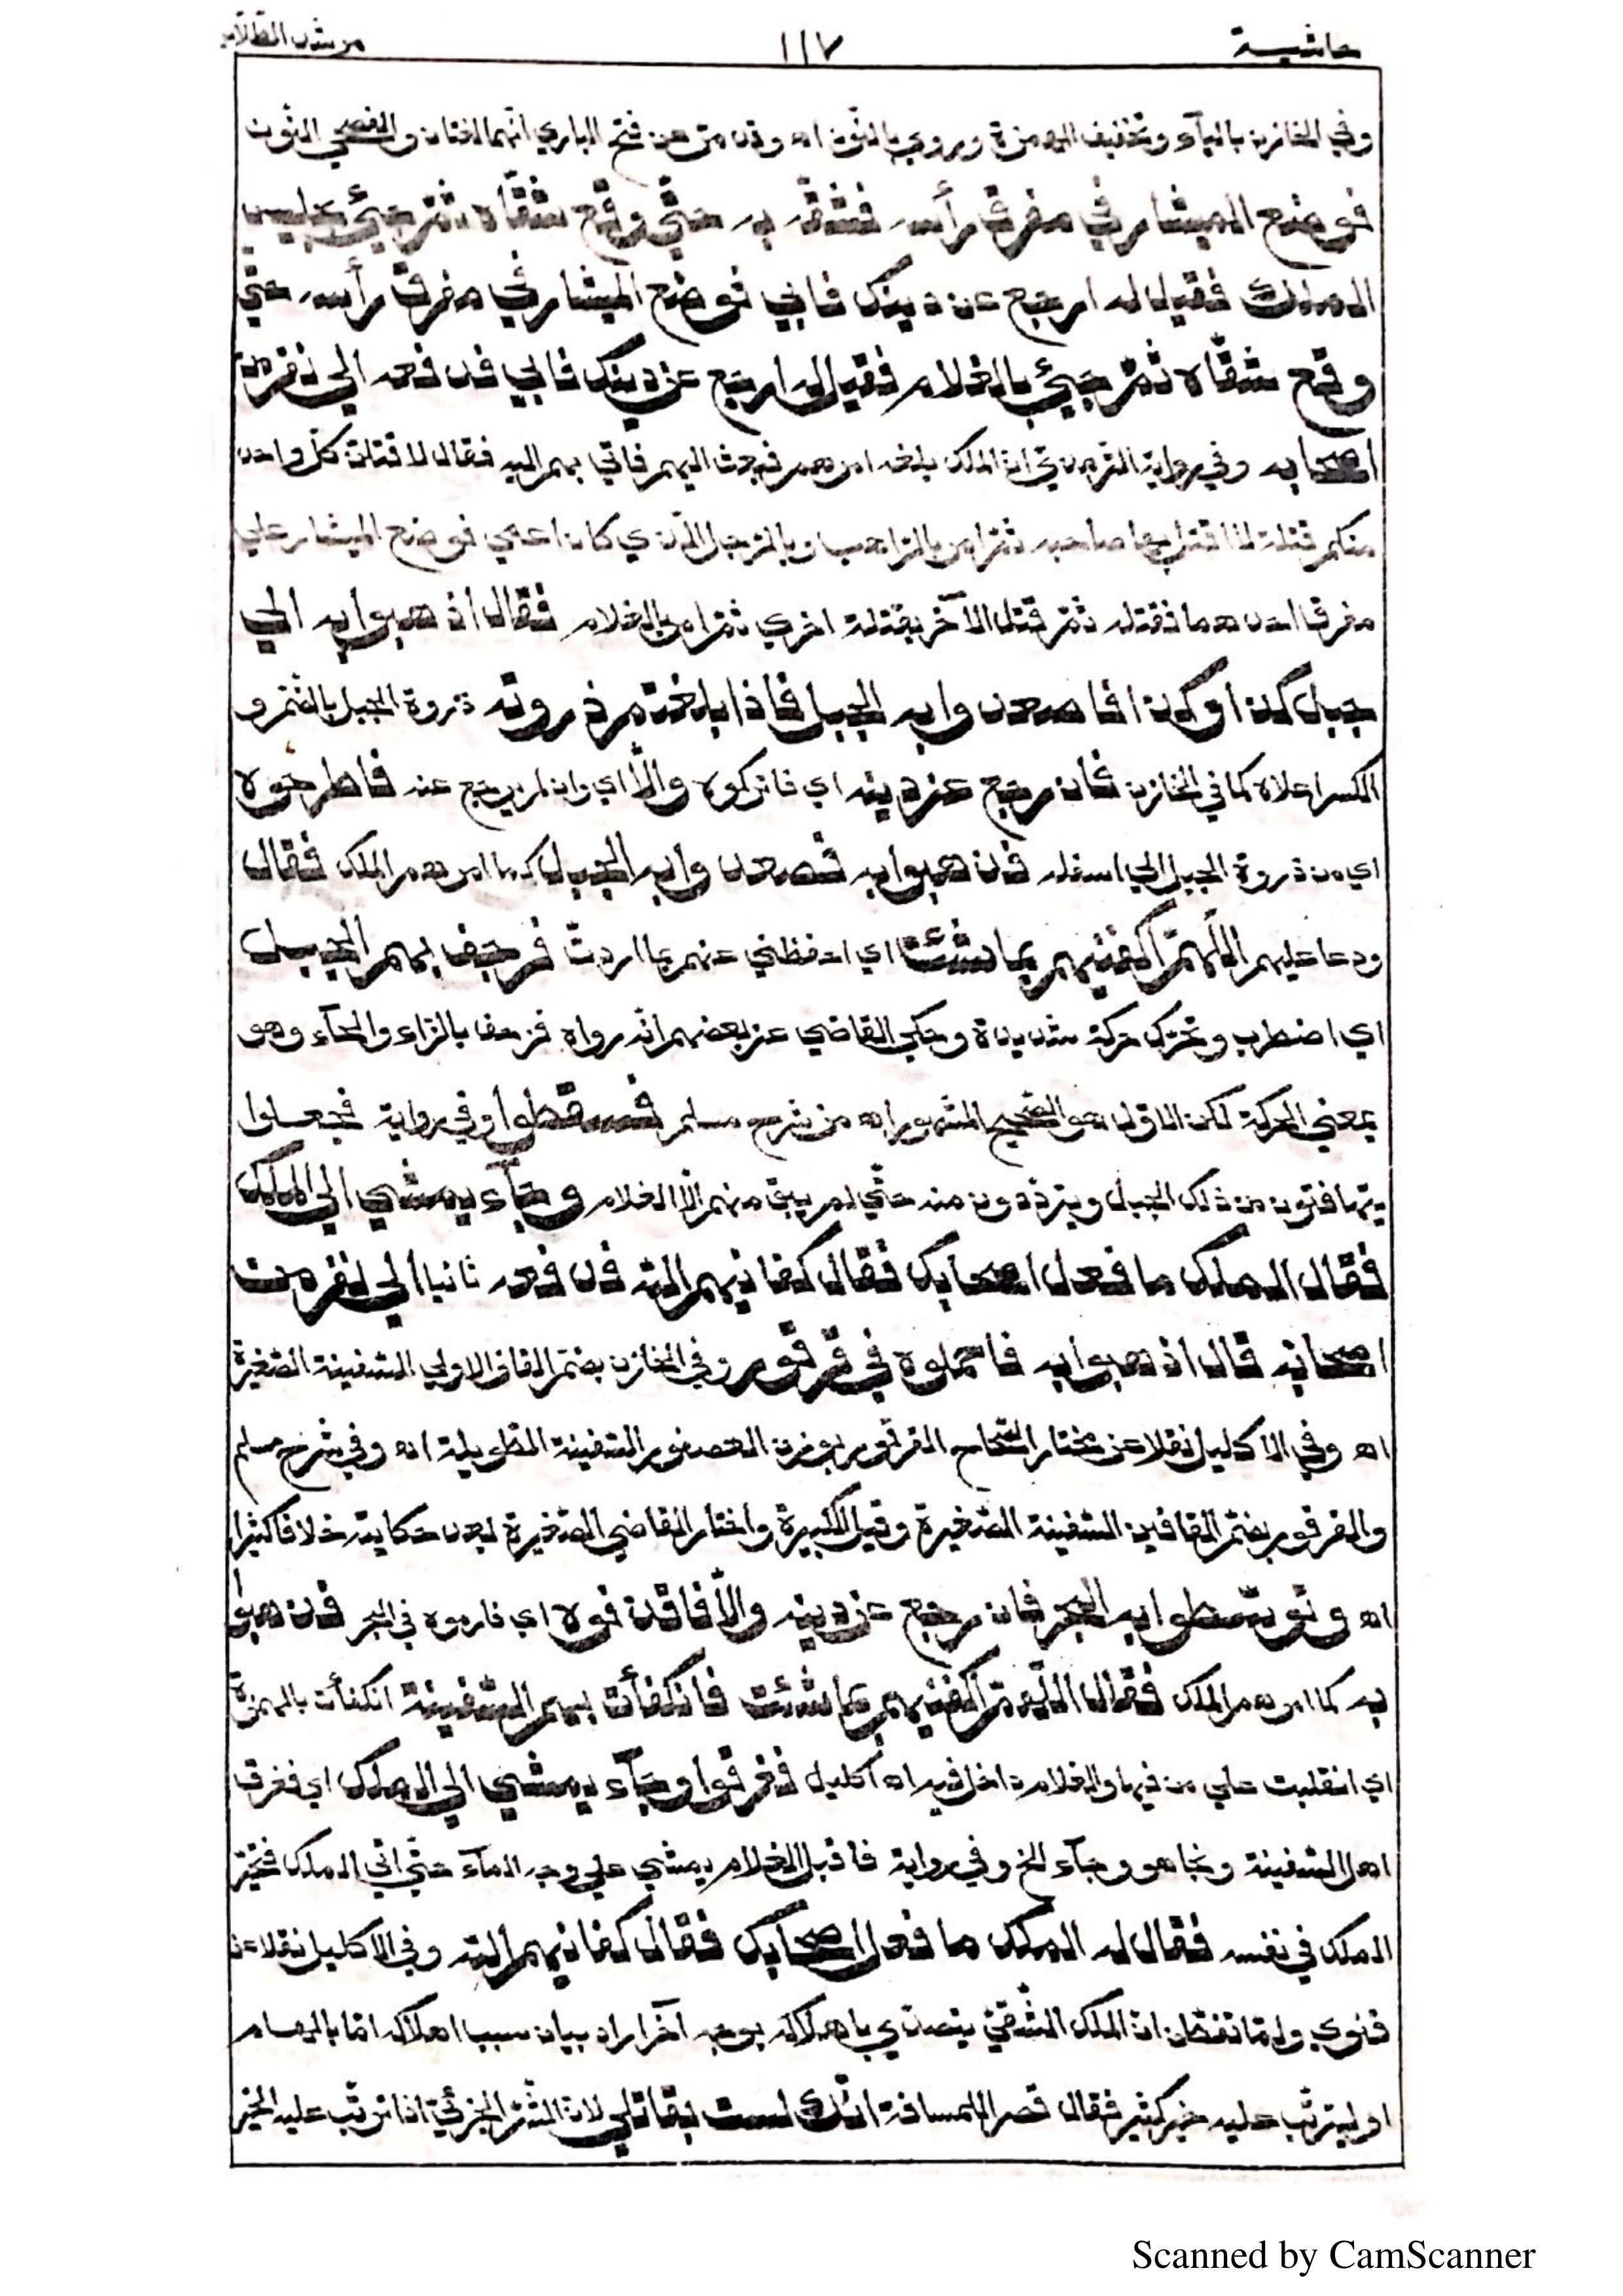 حاشية ١١٧ مرشد الطّلّاب
وفي الخازن بالياء وتخفيف الهمزة وروي بالنّون اه وقد مرّ عن فتح الباري انّهما لغتان والفصحى النّون
فوضع الميشار في مفرق رأسه فشقّه به حتّى وقع شقّاه ثمّ جيئ بجليس
الملك فقيل له ارجع عن دينك فابى فوضع الميشار في مفرق رأسه حتّى
وقع شقّاه ثمّ جيئ بالغلام فقيل له ارجع عن دينك فابى فدفعه الى نفر من
اصحابه وفي رواية الترمذي انّ الملك بلغه امرهم فبعث اليهم فاتي بهم اليه فقال لاقتلنّ كلّ واحد
منكم قتلة لا اقتل بها صاحبه ثمّ امر بالرّاهب وبالرّجل الّذي كان اعمى فوضع الميشار على
مفرق احدهما فقتله ثمّ قتل الآخر بقتلة اخرى ثمّ امر بالغلام فقال اذهبوا به الى
جبل كذا وكذا فاصعدوا به الجبل فاذا بلغتم ذروته ذروة الجبل بالضّمّ و
الكسر اعلاه كما في الخازن فان رجع عن دينه اي فاتركوه والّا اي وان لم يرجع عنه فاطرحوه
اي من ذروة الجبل الى اسفله فذهبوا به فصعدوا به الجبل كما امرهم الملك فقال
ودعا عليهم اللّهمّ اكفنيهم بما شئت اي احفظني عنهم بما اردتّ فرجف بهم الجبل
اي اضطرب وتحرّك حركة شديدة وحكى القاضي عن بعضهم انّه رواه فزحف بالزّاء والحآء وهو
بمعنى الحركة لكن الاوّل هو الصّحيح المشهور اه من شرح مسلم فسقطوا وفي رواية فجعلوا
يتهافتون من ذلك الجبل ويتردّدون منه حتّى لم يبق منهم الّا الغلام وجآء يمشي الى الملك
فقال الملك ما فعل اصحابك فقال كفانيهم اللّه فدفعه ثانيا الى نفر من
اصحابه قال اذهبوا به فاحملوه في قرقور وفي الخازن بضمّ القاف الاولى السّفينة الصّغيرة
اه وفي الاكليل نقلا عن مختار الصّحاح القرقور بوزن العصفور السّفينة الطّويلة اه وفي شرح مسلم
والقرقور بضمّ القافين السّفينة الصّغيرة وقيل الكبيرة واختار القاضي الصّغيرة بعد حكايته خلافا كثيرا
اه وتوسّطوا به البحر فان رجع عن دينه والّا فاقذفوه اي فارموه في البحر فذهبوا
به كما امرهم الملك فقال اللّهمّ اكفنيهم بما شئت فانكفأت بهم السّفينة انكفأت بالهمزة
اي انقلبت على من فيها والغلام داخل فيه اه اكليل فغرقوا وجآء يمشي الى الملك اي فغرق
اهل السّفينة ونجا هو وجآء الخ وفي رواية فاقبل الغلام يمشي على وجه المآء حتّى اتى الملك فتحيّر
الملك في نفسه فقال له الملك ما فعل اصحابك فقال كفانيهم اللّه وفي الاكليل نقلا عن
قنوي ولمّا تفطّن انّ الملك الشّقيّ يتصدّى باهلاكه بوجه آخر اراد بيان سبب اهلاكه امّا بالهام
او ليترتّب عليه خير كثير فقال قصرا للمسافة انّك لست بقاتلي لانّ الشّرّ الجزئيّ اذا ترتّب عليه الخير
Scanned by CamScanner